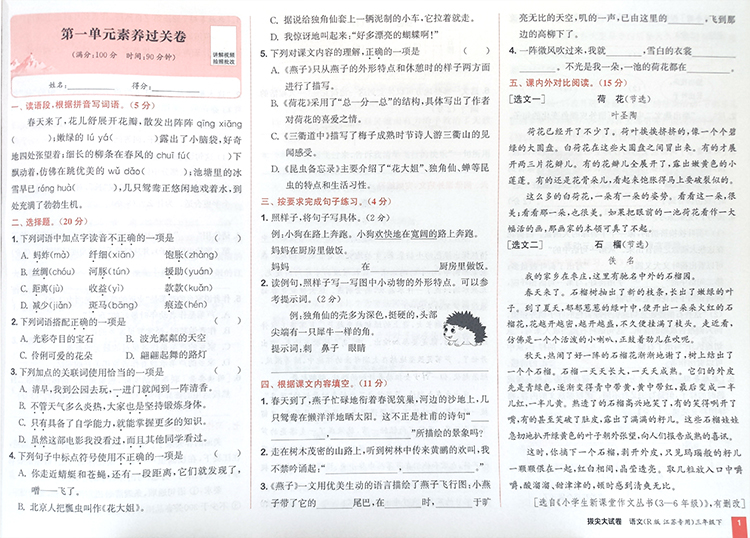 第一单元素养过关卷
(满分:100分 时间:90分钟)
讲解视频
拍照批改
姓名: 得分:
一、读语段,根据拼音写词语。(5分)
春天来了,花儿舒展开花瓣,散发出阵阵 qīng xiāng
( );嫩绿的 lú yá( )露出了小脑袋,好奇
地四处张望着;细长的柳条在春风的 chuī fú( )下
飘动着,仿佛在跳优美的 wǔ dǎo( );池塘里的冰
雪早已 róng huà( ),几只鸳鸯正悠闲地戏着水,到
处充满了勃勃生机。
二、选择题。(20分)
1. 下列词语中加点字读音不正确的一项是 ( )
A. 蚂蚱(mà) 纤细(xiān) 饱胀(zhàng)
B. 丝绸(chóu) 河豚(tún) 援助(yuán)
C. 距离(jù) 收益(yì) 款款(kuǎn)
D. 减少(jiǎn) 斑马(bāng) 痕迹(hén)
2. 下列词语搭配正确的一项是 ( )
A. 光彩夺目的宝石 B. 波光粼粼的天空
C. 伶俐可爱的花朵 D. 翩翩起舞的路灯
3. 下列加点的关联词语使用恰当的一项是 ( )
A. 清早,我到公园去玩,一进门就闻到一阵清香。
B. 不管天气多么炎热,大家也是坚持锻炼身体。
C. 只有具备了自学能力,就能掌握更多的知识。
D. 虽然这部电影我没看过,而且其他同学看过。
4. 下列句子中标点符号使用不正确的一项是 ( )
A. 你走近蜻蜓和苍蝇,还有一段距离,它们就发现了,
噌一飞了。
B. 北京人把瓢虫叫作《花大姐》。
C. 据说给独角仙套上一辆泥制的小车,它拉着就走。
D. 我惊讶地叫起来:“好多漂亮的蝴蝶啊!”
5. 下列对课文内容的理解,正确的一项是 ( )
A. 《燕子》只从燕子的外形特点和休憩时的样子两方面
进行了描写。
B. 《荷花》采用了“总一分一总”的结构,具体写出了作者
对荷花的喜爱之情。
C. 《三衢道中》描写了梅子成熟时节诗人游三衢山的见
闻感受。
D. 《昆虫备忘录》主要介绍了“花大姐”、独角仙、蝉等昆
虫的特点和生活习性。
三、按要求完成句子练习。(4分)
1. 照样子,将句子写具体。(2分)
例:小狗在路上奔跑。小狗欢快地在宽阔的路上奔跑。
妈妈在厨房里做饭。
妈妈 在 厨房里做饭。
2. 读例句,照样子写一写图中小动物的外形特点。可以参
考提示词。(2分)
例:独角仙的壳多为深色,挺硬的,头部
尖端有一只犀牛一样的角。
提示词:刺 鼻子 眼睛
四、根据课文内容填空。(11分)
1. 春天到了,燕子忙碌地衔着春泥筑巢,河边的沙地上,几
只鸳鸯在懒洋洋地晒太阳。这不正是杜甫的诗句“
, ”所描绘的景象吗?
2. 走在树木茂密的山路上,听到树林中传来黄鹂的欢叫,我
不禁吟诵起:“ , 。”
3. 《燕子》一文用优美生动的语言描绘了燕子飞行图:小燕
子带了它的 尾巴,在 时,在 ,于旷
亮无比的天空,叽的一声,已由这里的 ,飞到那
边的高柳下了。
4. 一阵微风吹过来,我就 ,雪白的衣裳
。不光是我一朵,一池的荷花都在 。
五、课内外对比阅读。(15分)
[选文一] 荷 花(节选)
叶圣陶
荷花已经开了不少了。荷叶挨挨挤挤的,像一个个碧
绿的大圆盘。白荷花在这些大圆盘之间冒出来。有的才展
开两三片花瓣儿。有的花瓣儿全展开了,露出嫩黄色的小
莲蓬。有的还是花骨朵儿,看起来饱胀得马上要破裂似的。
这么多的白荷花,一朵有一朵的姿势。看看这一朵,很
美;看看那一朵,也很美。如果把眼前的一池荷花看作一大
幅活的画,那画家的本领可真了不起。
[选文二] 石 榴(节选)
佚 名
我的家乡在枣庄,这里有驰名中外的石榴园。
春天来了。石榴树抽出了新的枝条,长出了嫩绿的叶
子。到了夏天,郁郁葱葱的绿叶中,便开出一朵朵火红的石
榴花,花越开越密,越开越盛,不久便挂满了枝头。走近看,
仿佛是一个个活泼的小喇叭,正鼓着劲儿在吹呢。
秋天,热闹了好一阵的石榴花渐渐地谢了,树上结出了
一个个石榴。石榴一天天长大,一天天成熟。它们的外皮
先是青绿色,逐渐变得青中带黄,黄中带红,最后变成一半
儿红,一半儿黄。熟透了的石榴高兴地笑了,有的笑得咧开了
嘴,有的甚至笑破了肚皮,露出了满满的籽儿。这些石榴娃娃
急切地扒开绿黄色的叶子朝外张望,向人们报告成熟的喜讯。
这时,你摘下一个石榴,剥开外皮,只见玛瑙般的籽儿
一颗颗偎在一起,红白相间,晶莹透亮。取几粒放入口中嚼
嚼,酸溜溜、甜津津的,顿时感到清爽无比。
[选自《小学生新课堂作文丛书(3—6年级)》,有删改]
拔尖大试卷 语文(R版 江苏专用)三年级下 1